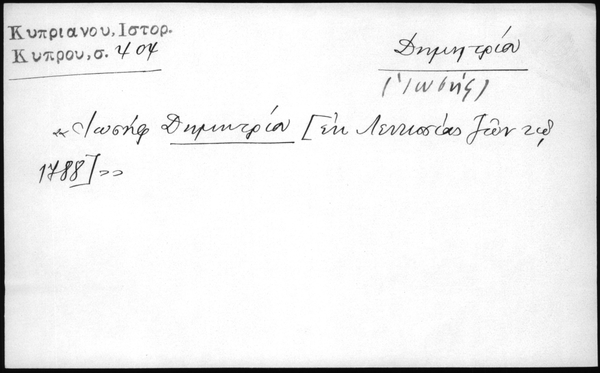 Κυπριανου, Ιστορ.
Κυπρου, σ. 404
Δημητρίου
(Ἰωσήφ)
«Ἰωσήφ Δημητρίου [ἐκ Λευκωσίας ζῶν τῷ
1788]»